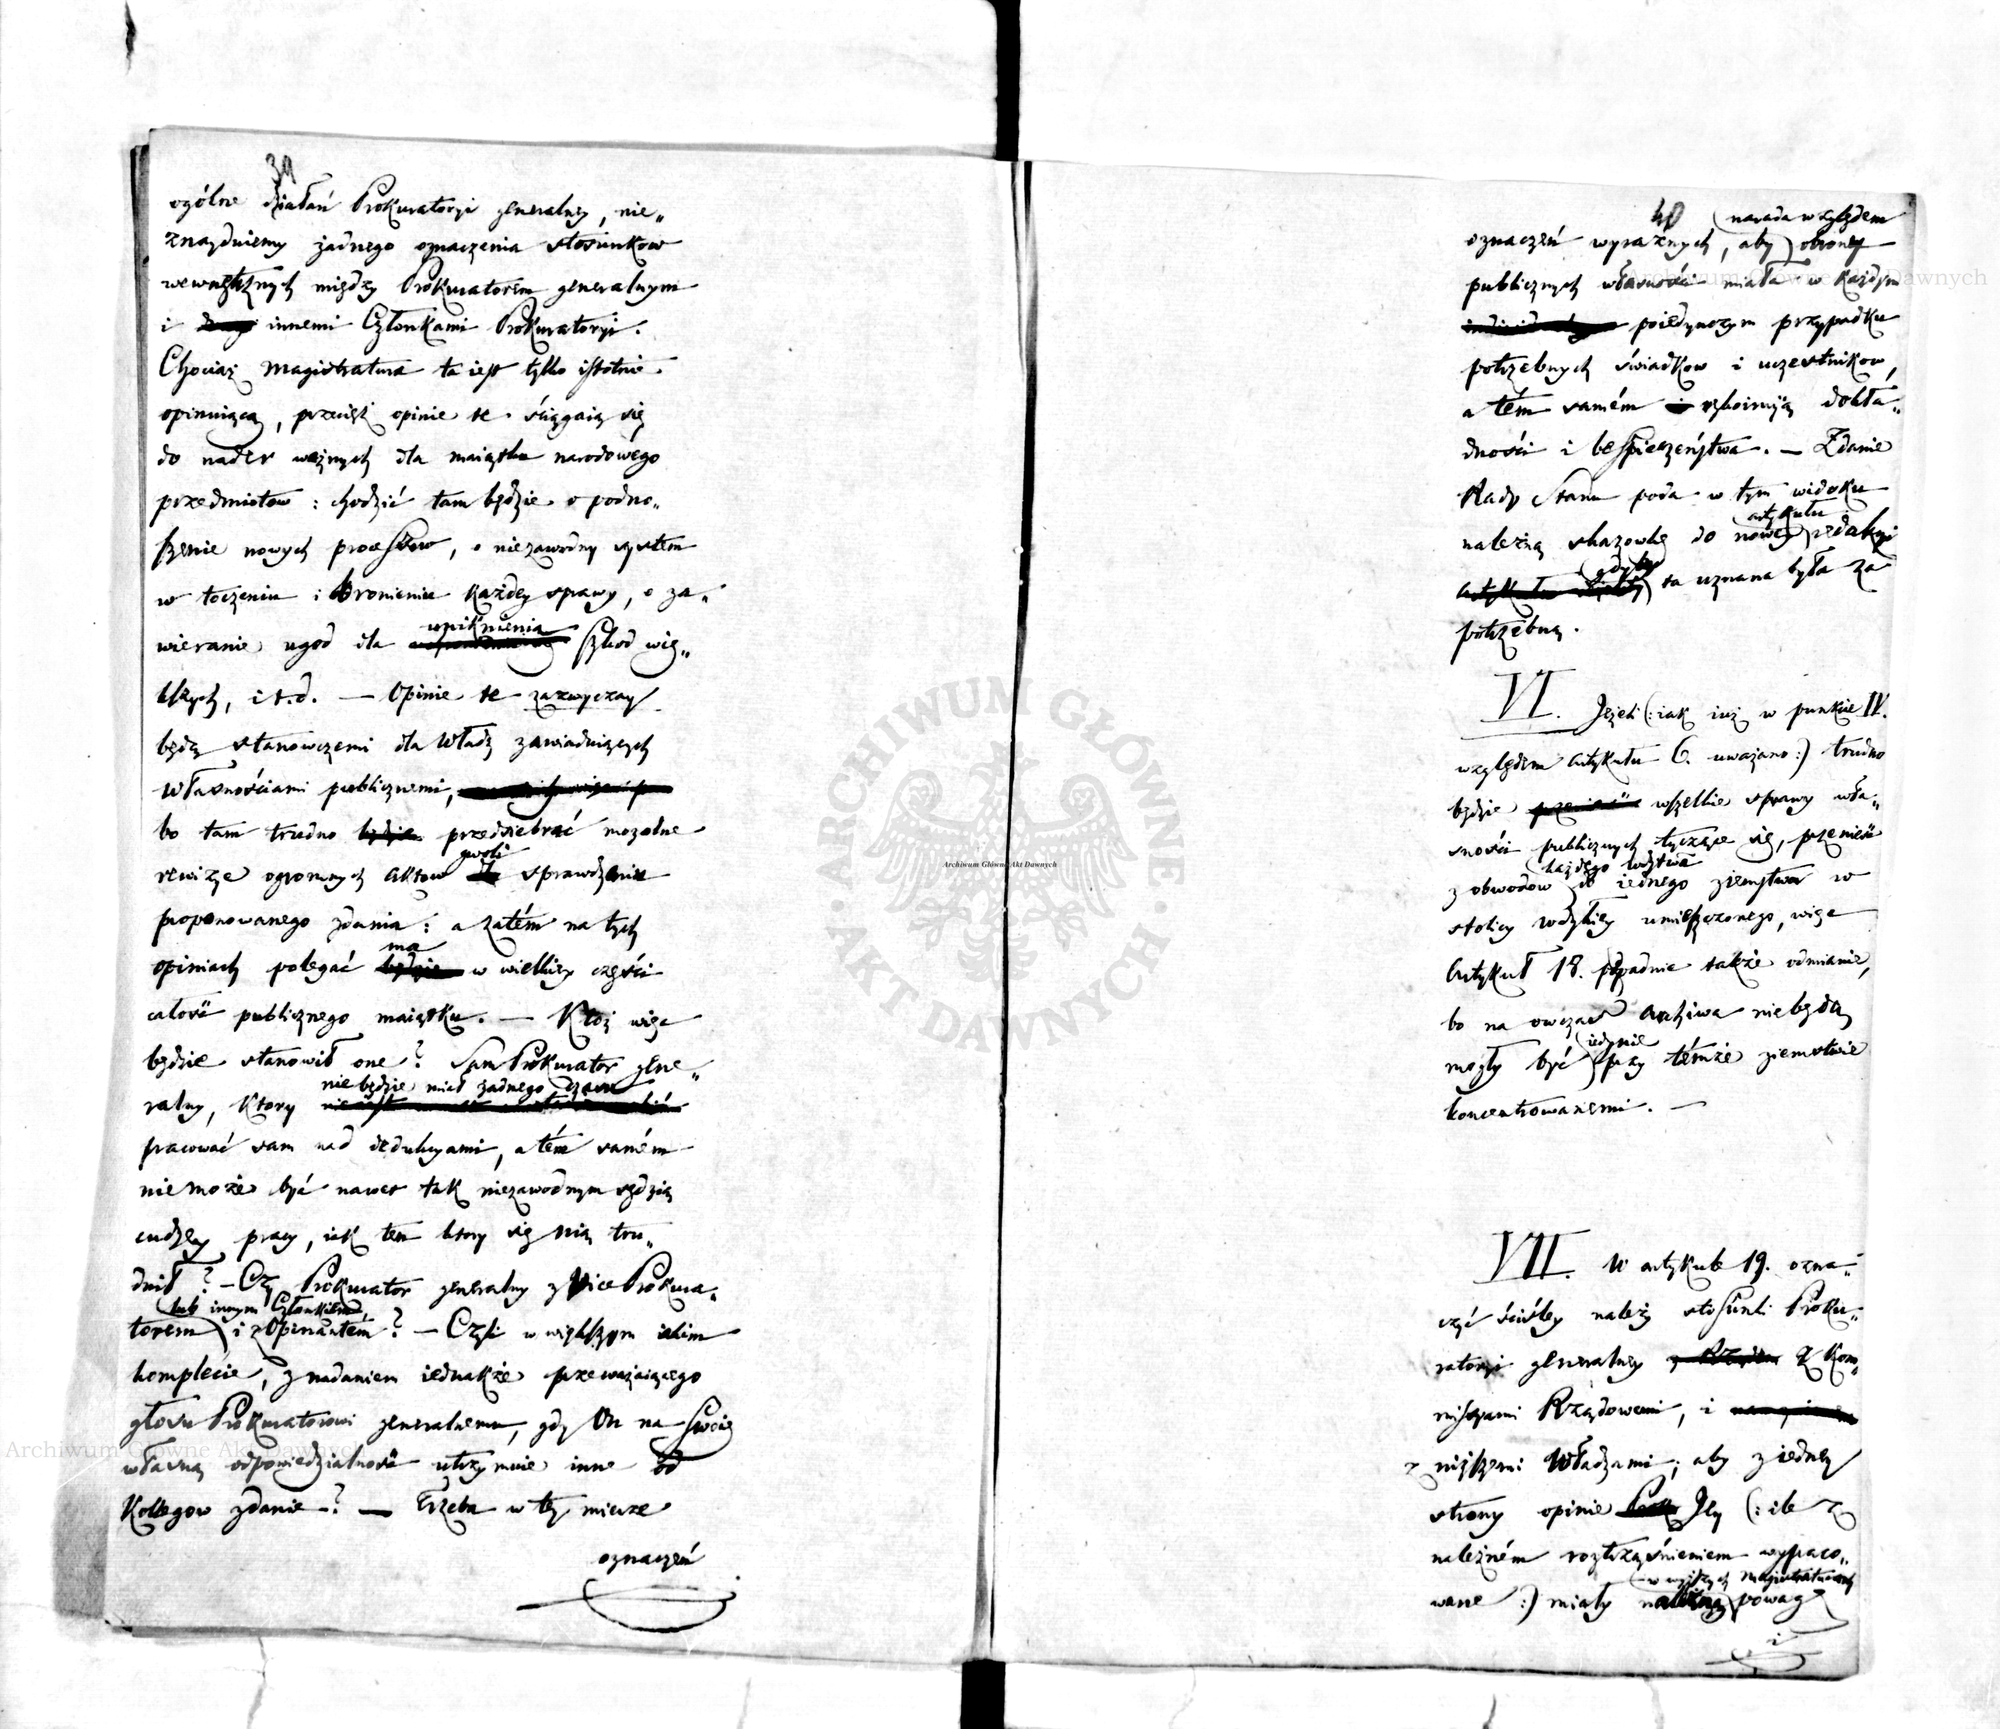 39
ogólne działań Prokuratoryi generalney, nie„
znayduiemy żadnego oznaczenia stosunkow
wewnętrznych między Prokuratorem generalnym
i innemi Członkami Prokuratoryi.
Chociaż magistratura ta iest tylko istotnie
opiniuiącą, przecięż opinie te ściągaią się
do nader ważnych dla maiątku narodowego
przedmiotow : chodzić tam będzie o podno„
szenie nowych processow, o niezawodny system
w toczeniu i bronieniu każdey sprawy, o za„
wieranie ugod dla uniknienia szkod wię„
kszych, i t.d. — Opinie te zazwyczay
będą stanowczemi dla Władz zawiaduiących
Własnościami publicznemi,
bo tam trudno przedsiebrać mozolne
rewizye ogromnych aktow gwoli sprawdzenia
proponowanego zdania : a zatém na tych
opiniach polegać ma w wielkiey części
całość publicznego maiątku. — Ktoż więc
będzie stanowił one? Sam Prokurator gene„
ralny, ktory nie będzie miał żadnego czasu
pracować sam nad dedukcyami, a tém samém
niemoże być nawet tak niezawodnym sędzią
cudzey pracy, iak ten ktory się nią tru„
dnił? — Czy Prokurator generalny z Vice Prokura„
lub innym Członkiem,
torem i z Opinantem? — Czyli w większym iakim
komplecie, z nadaniem iednakże przeważaiącego
głosu Prokuratorowi generalnemu, gdy On na swoię
własną odpowiedzialność utrzymuie inne od
Kollegow zdanie —? — Trzeba w tey mierze
oznaczeń
40
narada względem
oznaczeń wyraźnych, aby obrony
publicznych własności miała w każdym
poiedynczym przypadku
potrzebnych świadkow i uczestnikow,
a tém samém rękoimią dokła„
dności i bespieczeństwa. — Zdanie
Rady Stanu poda w tym widoku
artykułu
należną skazowkę do nowey redakcyi
gdyby ta uznana była za
potrzebną.
VI. Jeżeli (: iak iuż w punkcie IV.
względem artykułu 6. uważano :) trudno
będzie wszelkie sprawy wła„
sności publicznych tyczące się, przenieść
każdego wdztwa
z obwodow do iednego ziemstwa w
stolicy wdzkiey umieszczonego, więc
Artykuł 18. podpadnie także odmianie,
bo na owczas Archiwa niebędą
iedynie
mogły być przy témże ziemstwie
koncentrowanemi. —
VII. W artykule 19. ozna„
czyć ściśley należy stosunki Proku„
ratoryi generalney z Kom„
missyami Rządowemi, i
z niższemi Władzami; aby z iedney
strony opinie Jey (: ile z
należném roztrząśnieniem wypraco„
w wyższych magistraturach
wane :) miały należną powagę
i
Archiwum Główne Akt Dawnych
Archiwum Główne Akt Dawnych
Archiwum Główne Akt Dawnych
ARCHIWUM GŁÓWNE AKT DAWNYCH